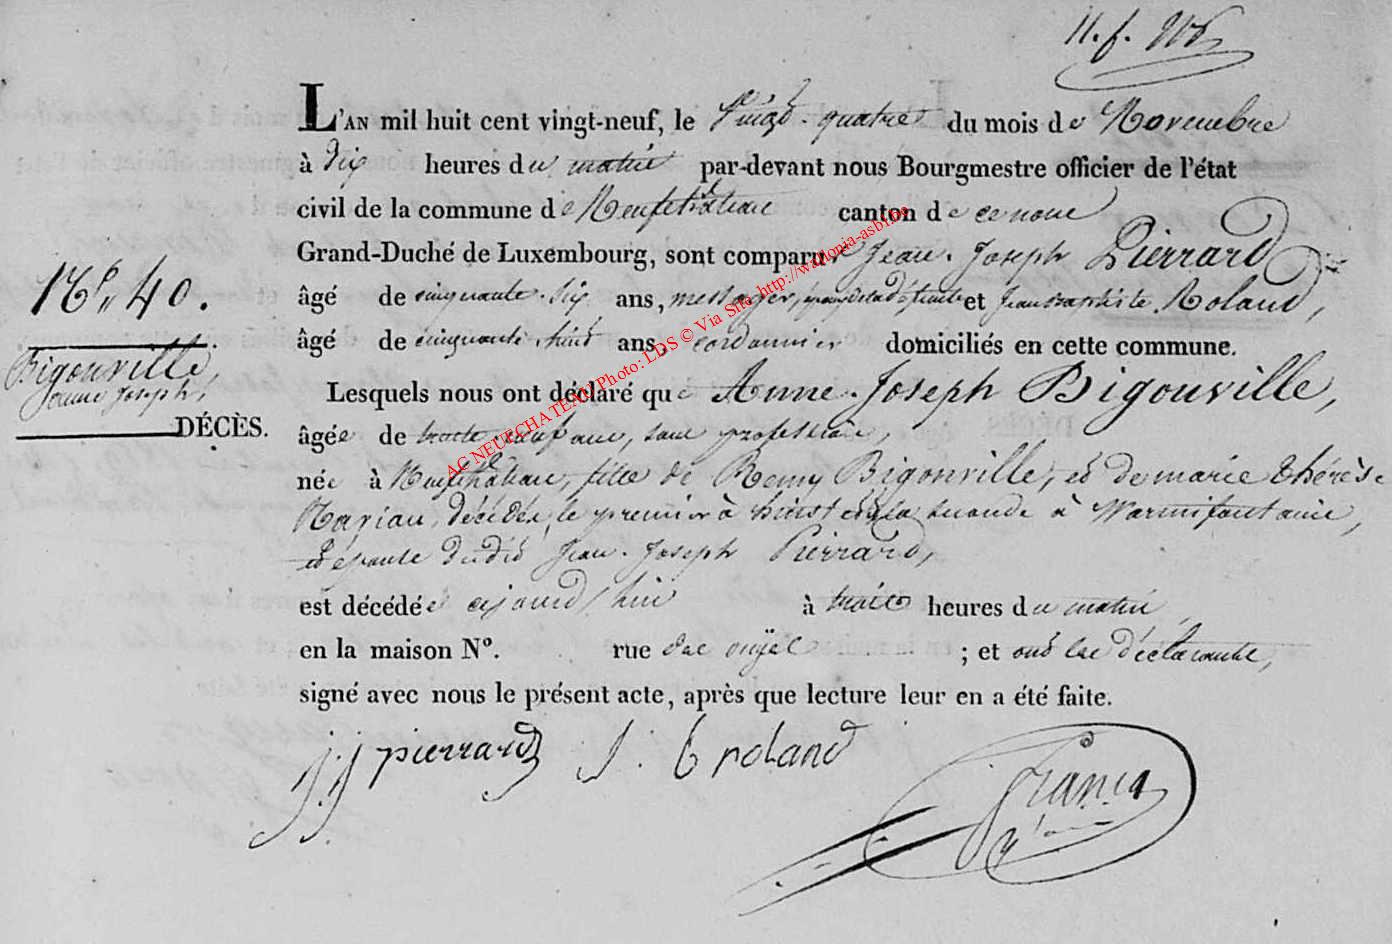 11. f.
L'AN mil huit cent vingt-neuf, le Vingt-quatre du mois de Novembre
à dix heures du matin par-devant nous Bourgmestre officier de l'état
civil de la commune de Neufchâteau canton de ce nom
Grand-Duché de Luxembourg, sont comparus Jean-Joseph Pierrard
âgé de cinquante-six ans, messager, époux de la défunte et Jean baptiste Roland,
âgé de cinquante huit ans, cordonnier domiciliés en cette commune.
Lesquels nous ont déclaré que Anne-Joseph Bigonville,
âgée de trente neuf ans, sans profession,
née à Neufchâteau, fille de Remy Bigonville, et de marie thérèse
décédés, le premier à et la seconde à Warmifontaine,
et épouse dudit Jean-Joseph Pierrard,
est décédée aujourd'hui à trois heures du matin,
en la maison N°. rue ; et ont les déclarants,
signé avec nous le présent acte, après que lecture leur en a été faite.
N° 40.
Bigonville,
anne Joseph,
DÉCÈS.
jj pierrard J. b roland
AG NEUFCHATEAU Photo: LDS © Via Site http://wallonia-asbl.be